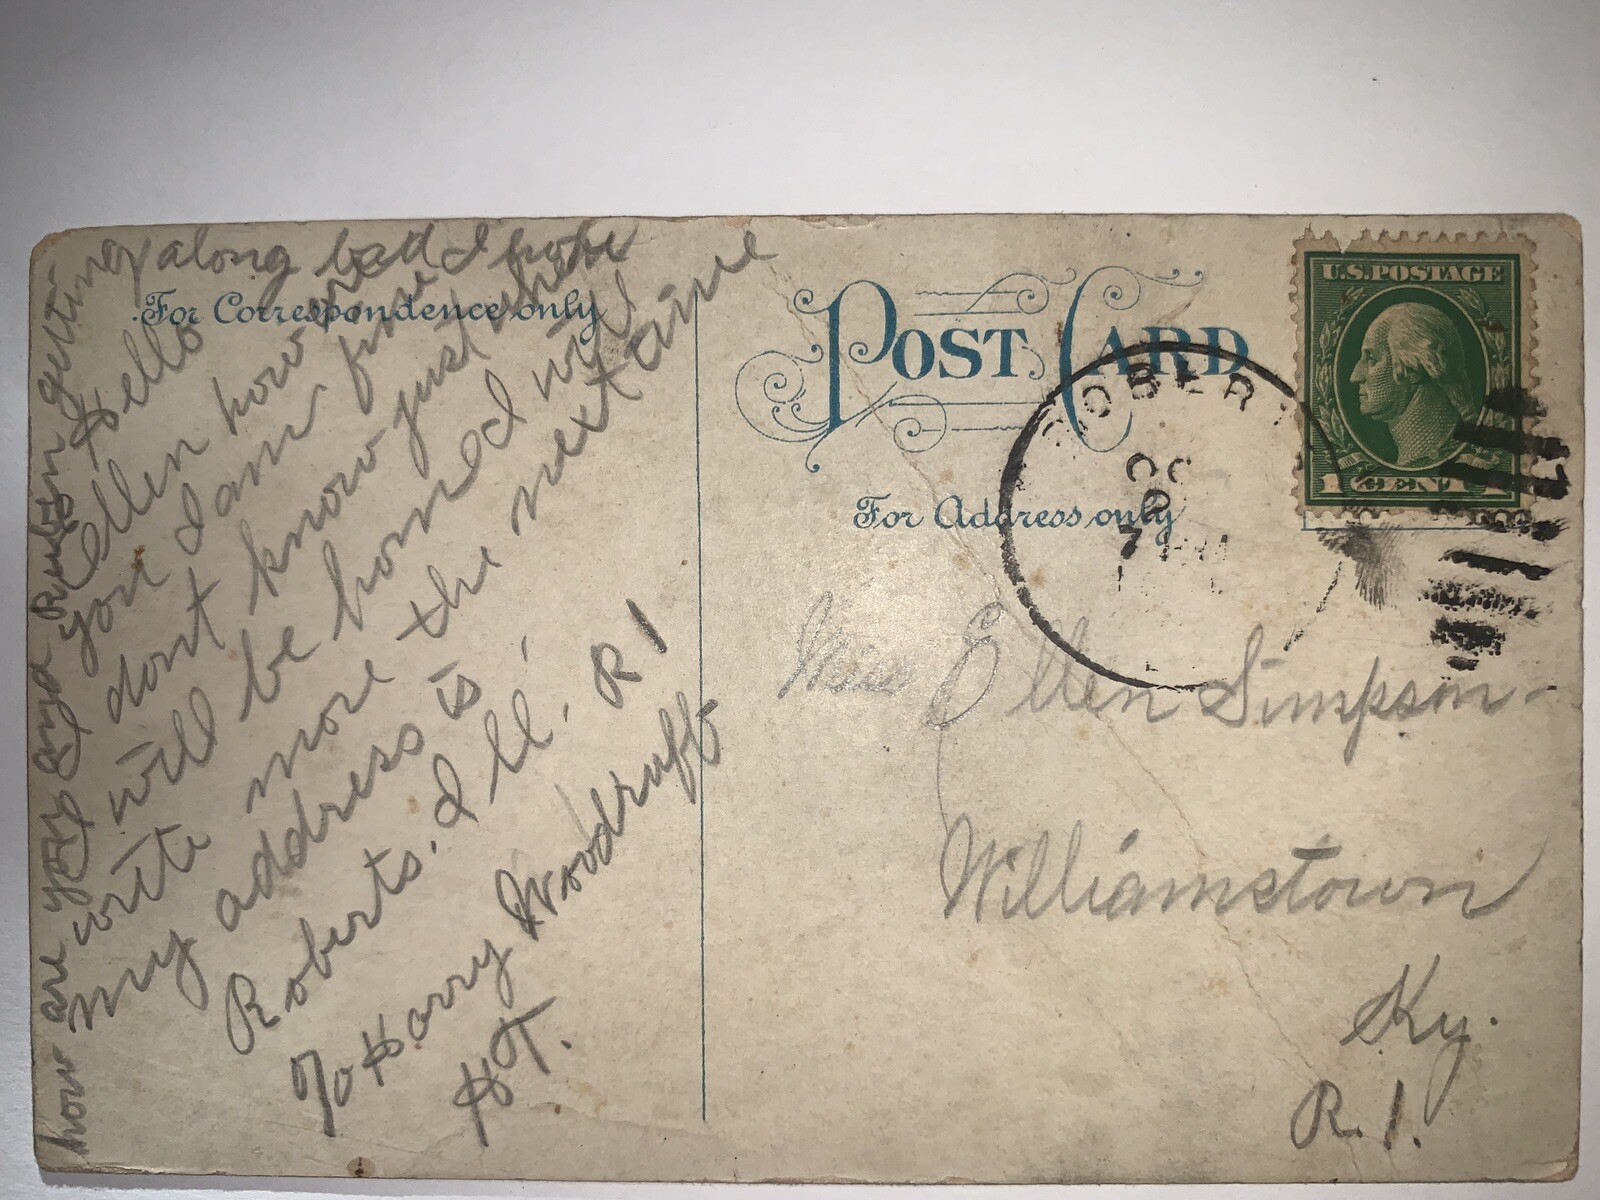 For Correspondence only
Hello
Ellen how are
you I am fine
dont know just when
will be home will
write more the next time
my address is
Roberts. Ill. R 1
% Harry Woodruff
H T.
how are you and Ruben getting
along bad I hope
POST CARD
For Address only
U.S. POSTAGE
1 CENT 1
OC
7
Miss Ellen Simpson
Williamstown
Ky.
R. 1.